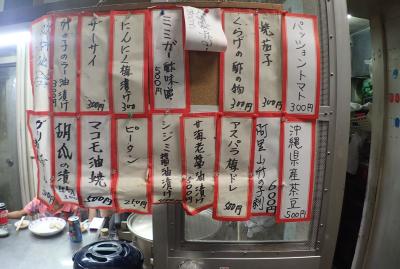 パッショントマト 300円
焼茄子 300
くらげの酢の物 300円
ミミガー酢味噌 500円
にんにく梅漬け 300
ザーサイ 300円
竹の子のラー油漬け
沖縄県産茶豆 500円
阿里山竹の子刺 600円
アスパラ梅ドレ 500円
甘海老醤油漬け 500円
シジミ醤油漬け
ピータン 250円
マコモ油焼 500円
胡瓜の漬